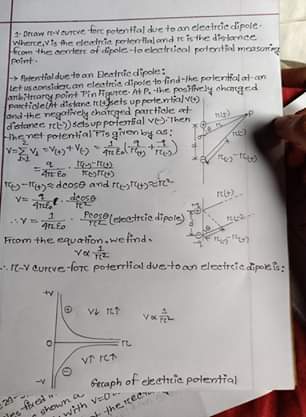 1. Draw r-v curve for potential due to an electric dipole.
Where, V is the electric potential and r is the distance
from the center of dipole to electrical potential measuring
point.
→ Potential due to an Electric dipole:
Let us consider an electric dipole to find the potential at an
arbitrary point P in Figure. At P, the positively charged
particle (At distance r(+)) sets up potential V(+)
and the negatively charged particle at
distance r(-)) sets up potential V(-). Then
the net potential P is given by as:
V = Σ Vi = V(+) + V(-) = 1/4πε0 (q/r(+) + -q/r(-))
= q/4πε0 · r(-)-r(+)/r(-)r(+)
r(-)-r(+) ≈ d cosθ and r(-) r(+) ≈ r²
V = q/4πε0 · d cosθ/r²
∴ V = 1/4πε0 · P cosθ/r² (electric dipole)
From the equation, we find,
V ∝ 1/r²
∴ r-V curve for potential due to an electric dipole is:
+V
V↓ r↑ V∝ 1/r²
0 r
V↑ r↑
-V
Graph of electric potential
r(+) P
r(-)
r(-)-r(+)
r(+)
r(-)
r(-)-r(+)
with V=0